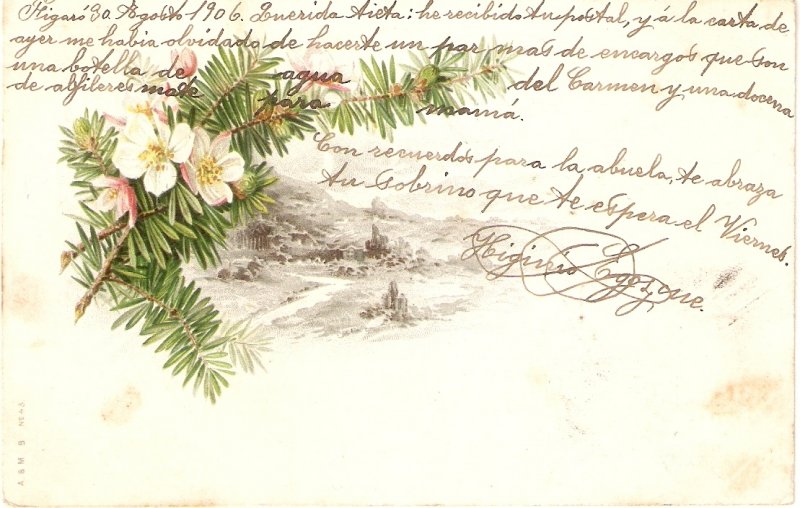 Figaró 30 Agosto 1906. Querida Tieta: he recibido tu postal, y á la carta de
ayer me habia olvidado de hacerte un par mas de encargos que son
una botella de agua del Carmen y una docena
de alfileres para mamá.
Con recuerdos para la abuela, te abraza
tu sobrino que te espera el Viernes.
Higinio
A & M B Nº 43